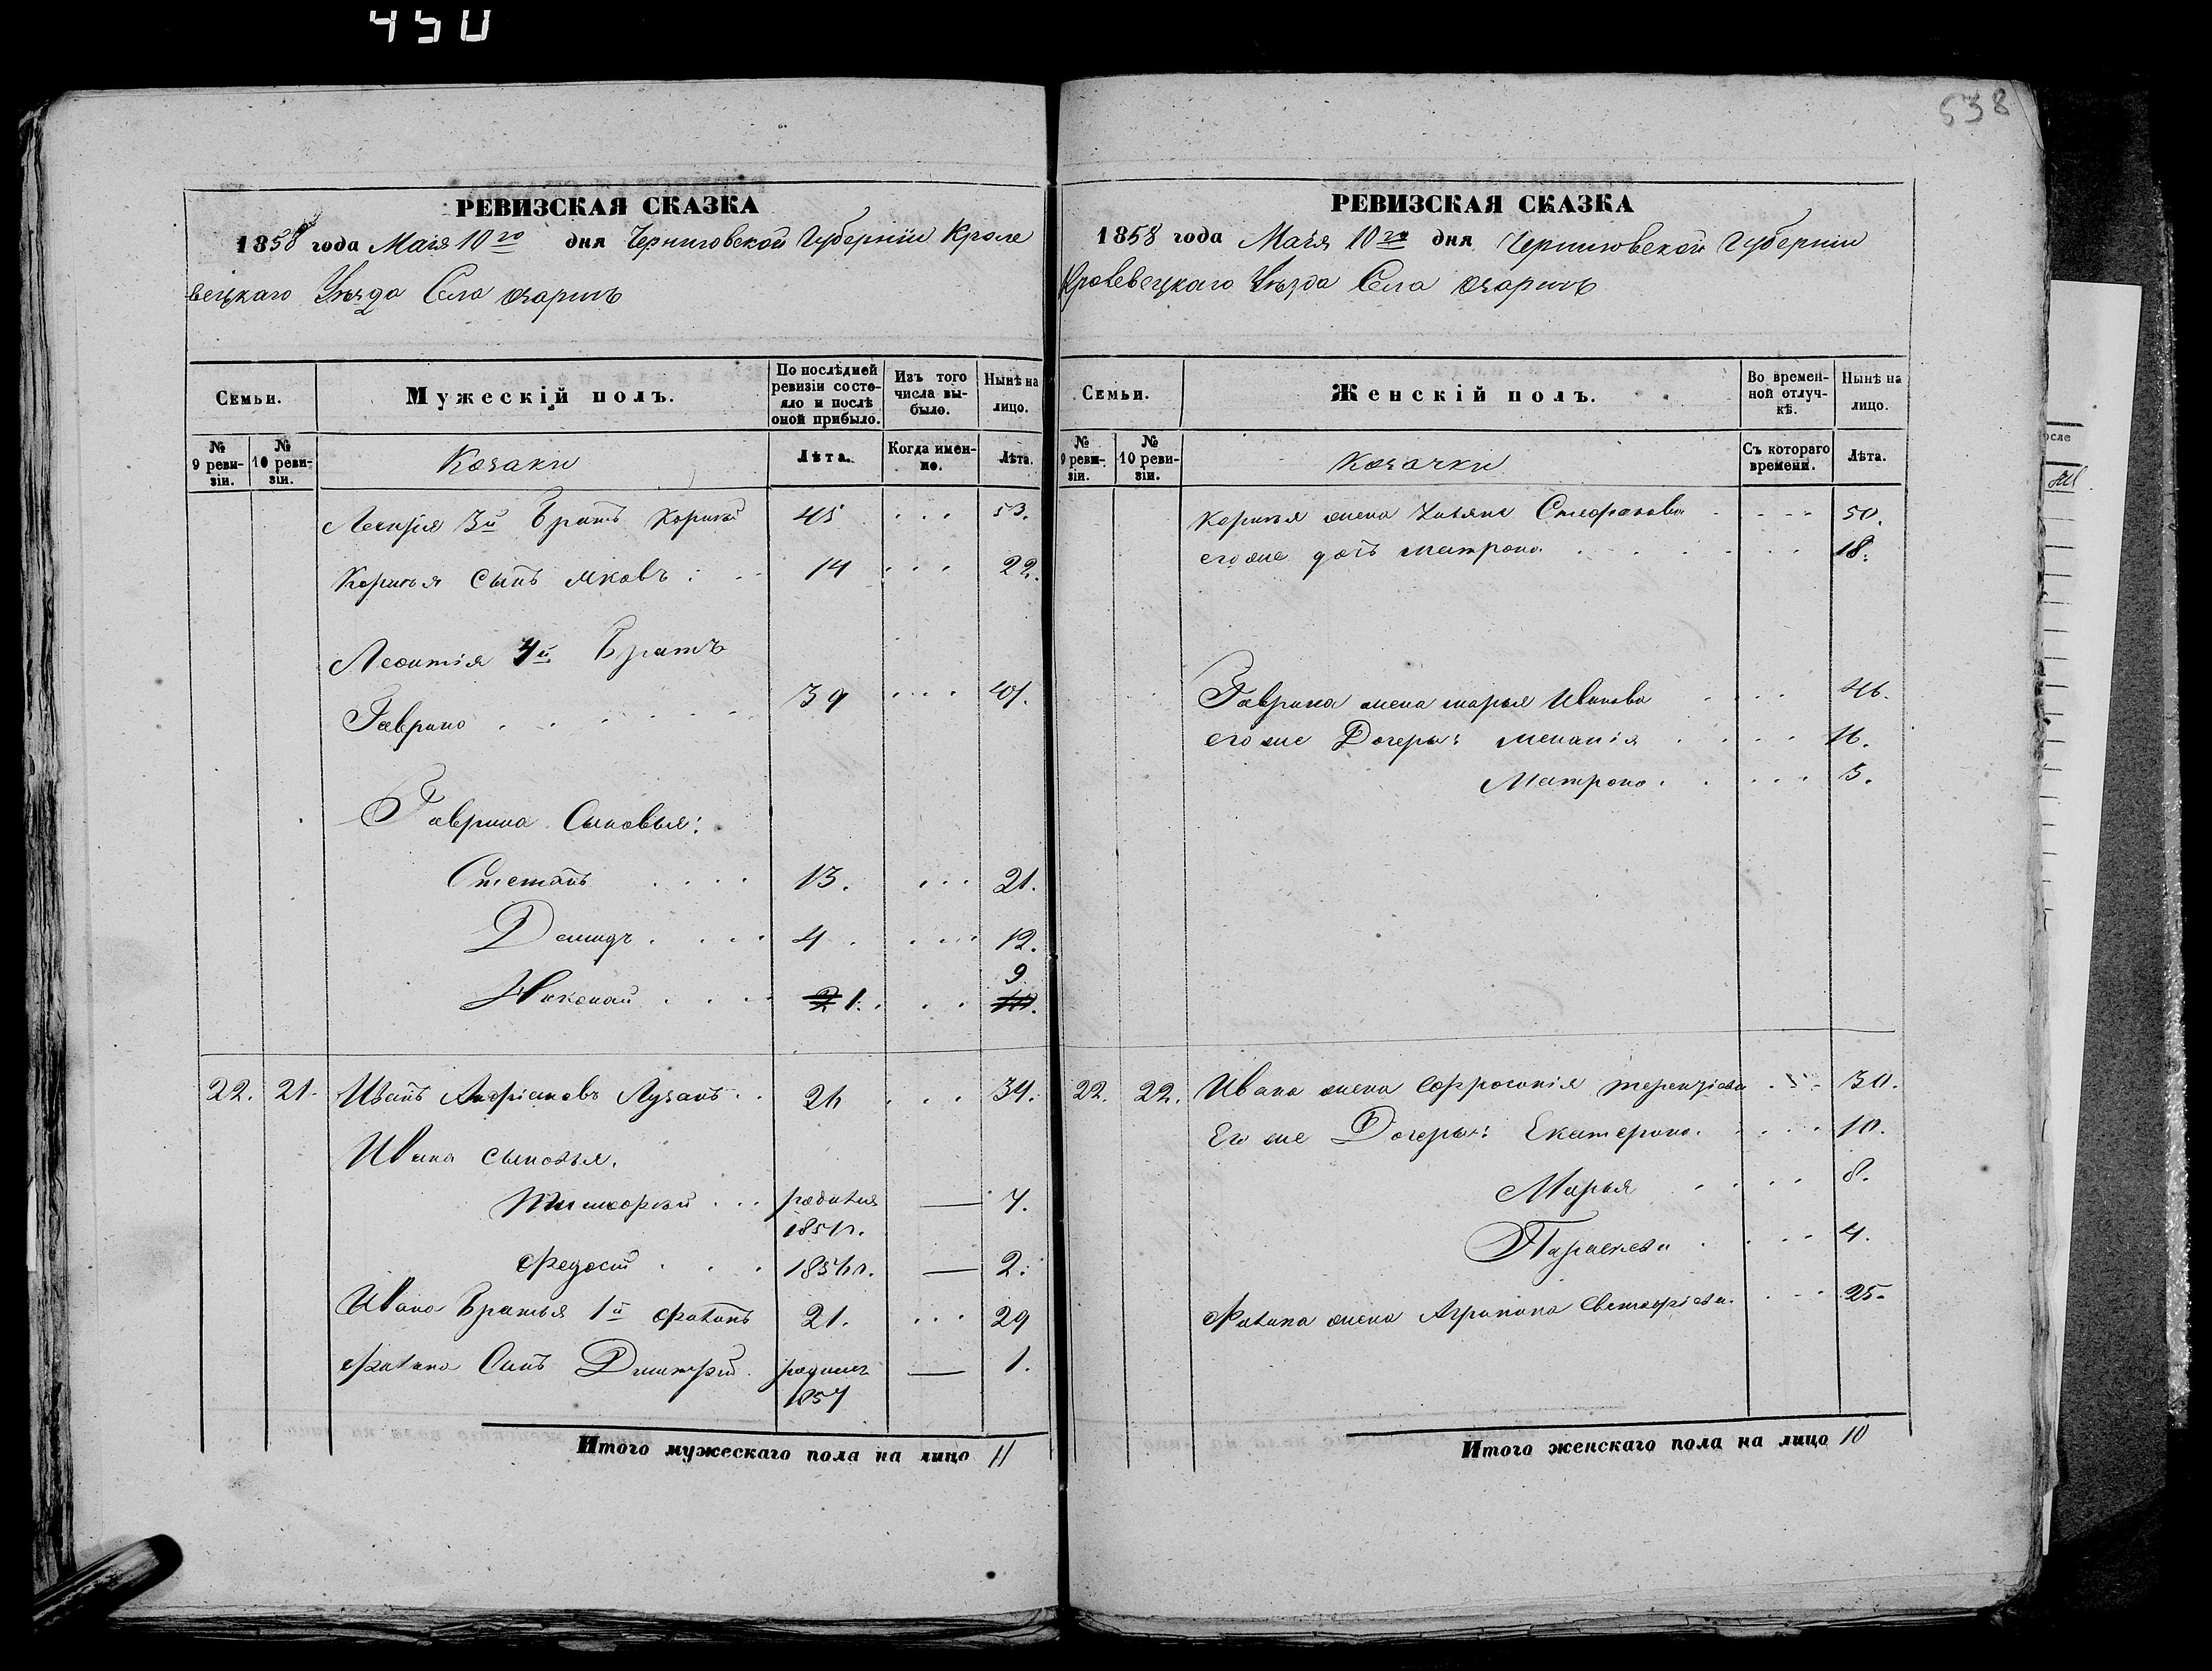 450
538
РЕВИЗСКАЯ СКАЗКА
1858 года Маія 10го дня Черниговской Губерніи Кроле
вецкаго Уѣзда Села Озаричъ
Семьи.
Мужескій полъ.
По послѣдней ревизіи состояло и послѣ оной прибыло.
Изъ того числа выбыло.
Нынѣ на лицо.
№ 9 ревизіи.
№ 10 ревизіи.
Козаки
Лѣта.
Когда именно.
Лѣта.
3й Братъ Корній 45 . . . 53.
Корнія Сынъ Яковъ : . . 14 . . . 22.
Леонтія 4й Братъ
Гаврило . . . . . . 39 . . . 47.
Гаврила Сыновья:
Степанъ . . . . 13. . . . 21.
Демидъ . . . . 4 . . . . 12.
Николай . . . . 2 1. . . . 10. 9
22. 21. Иванъ Лузанъ . . 26 . . . 34.
Ивана сыновья.
Тимофей . . . родился 1851г. — 7.
Федосій . . . 1856г. — 2.
Ивана Братья 1й Фатѣй 21. . . . 29
Сынъ Дмитрій. родился 1857 — 1.
Итого мужескаго пола на лицо 11
РЕВИЗСКАЯ СКАЗКА
1858 года Маія 10го дня Черниговской Губерніи
Кролевецкаго Уѣзда Села Озаричъ
Семьи.
Женскій полъ.
Во временной отлучкѣ.
Нынѣ на лицо.
№ 9 ревизіи.
№ 10 ревизіи.
Козачки
Съ котораго времени.
Лѣта.
Корнія жена Татяна Стефанова . . . . 50.
его же дочь Матрона . . . . . . 18.
Гаврила жена Марья Иванова . . . . 46.
его же Дочери: Меланія . . . . 16.
Матрона . . . . . 5.
22. 22. Ивана жена Ефросинія Терентіева . . . 30.
Его же Дочери: Екатерина . . . . 10.
Марья . . . . 8.
Параскева . . . . 4.
жена Агрипина . . . 25.
Итого женскаго пола на лицо 10